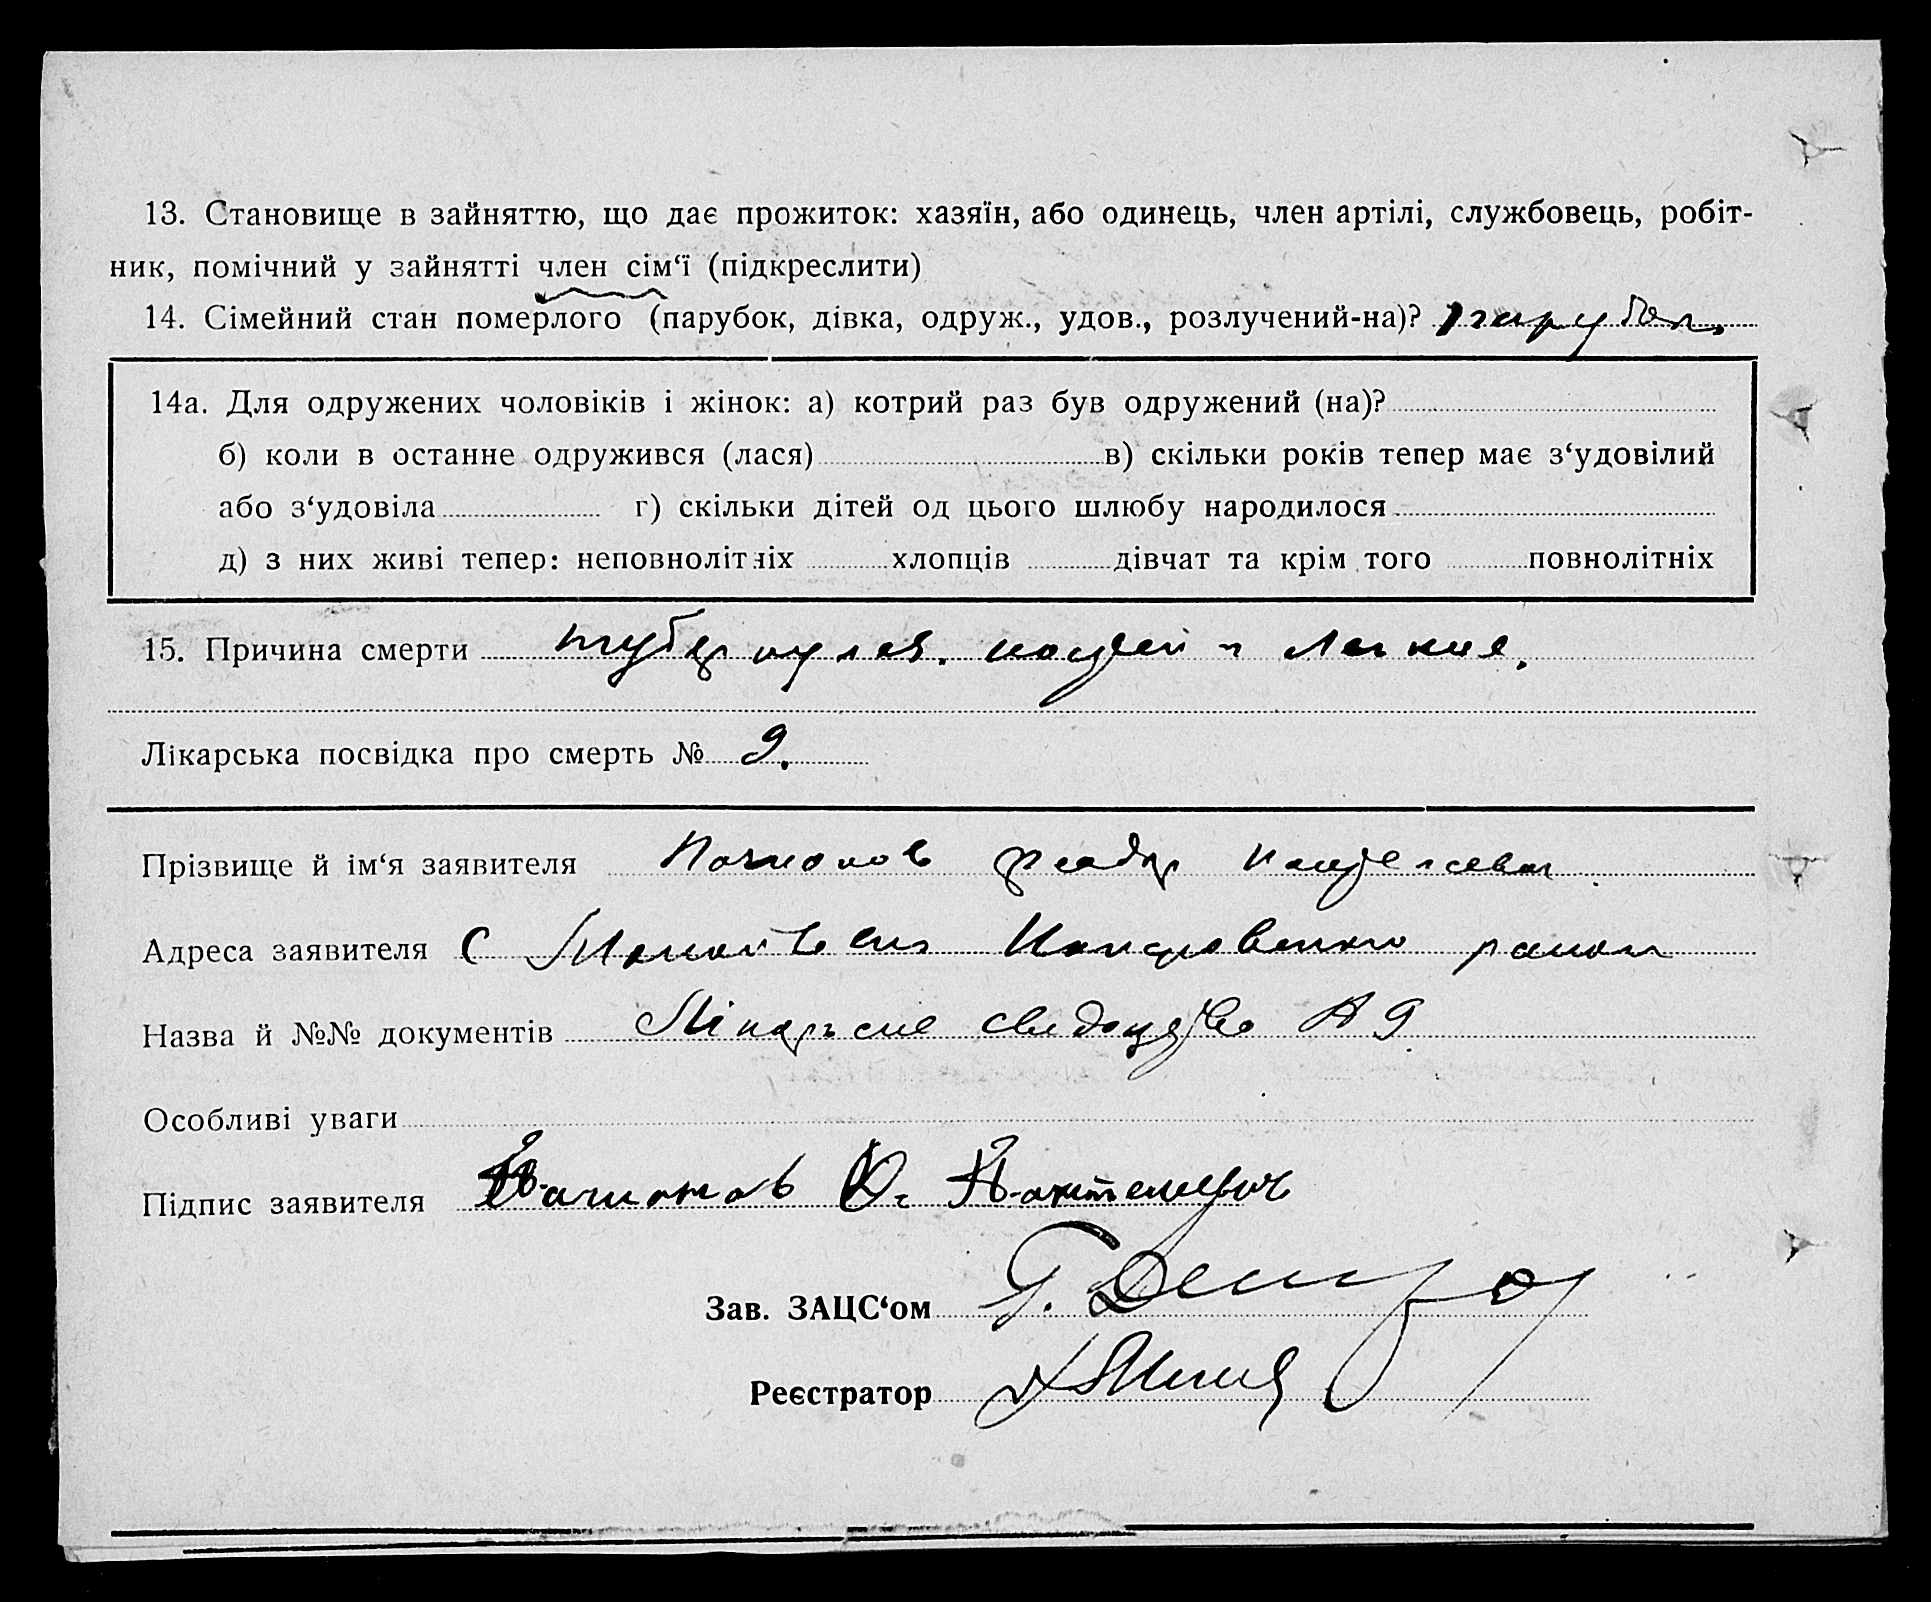 13. Становище в зайняттю, що дає прожиток: хазяїн, або одинець, член артілі, службовець, робіт-
ник, помічний у зайнятті член сім‘ї (підкреслити)
14. Сімейний стан померлого (парубок, дівка, одруж., удов., розлучений-на)? парубок
14а. Для одружених чоловіків і жінок: а) котрий раз був одружений (на)?
б) коли в останне одружився (лася) в) скільки років тепер має з‘удовілий
або з‘удовіла г) скільки дітей од цього шлюбу народилося
д) з них живі тепер: неповнолітніх хлопців дівчат та крім того повнолітніх
15. Причина смерти
Лікарська посвідка про смерть № 9.
Прізвище й ім‘я заявителя
Адреса заявителя С
Назва й №№ документів Лікарське свидоцтво № 9
Особливі уваги
Підпис заявителя
Зав. ЗАЦС‘ом
Реєстратор